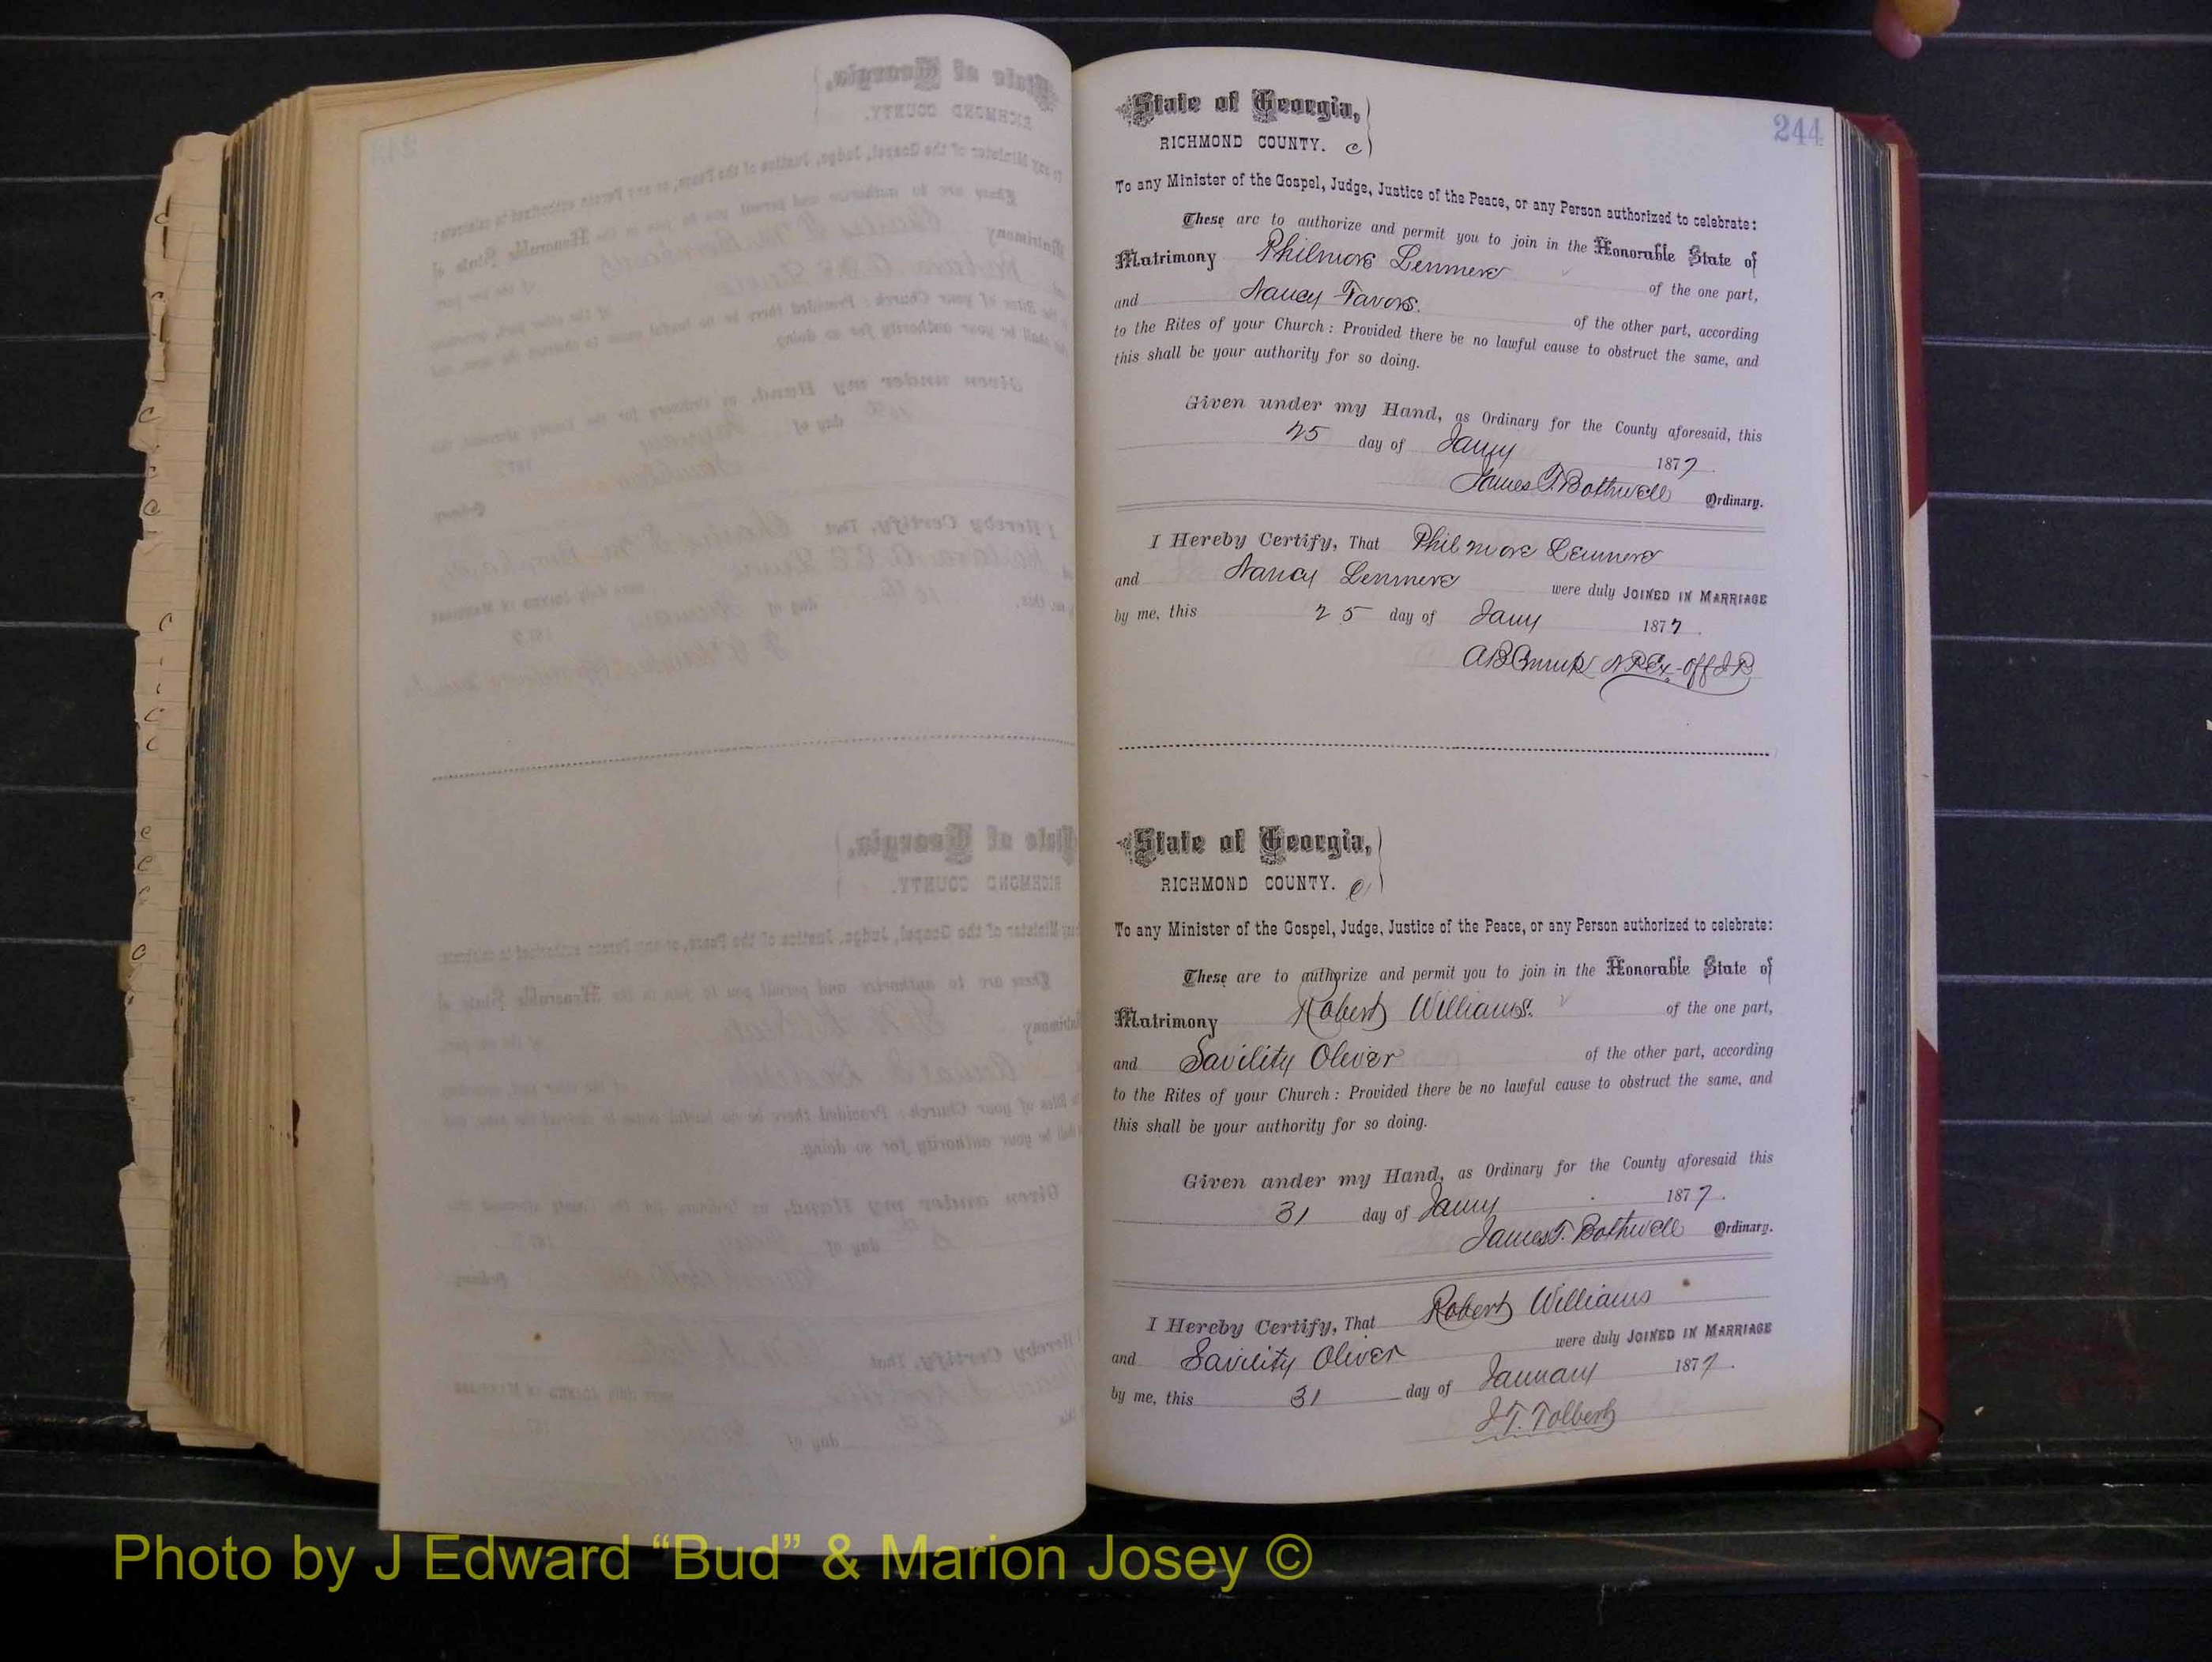 244
State of Georgia,
RICHMOND COUNTY. C
To any Minister of the Gospel, Judge, Justice of the Peace, or any Person authorized to celebrate:
These are to authorize and permit you to join in the Honorable State of
Matrimony Philmore Lenmere of the one part,
and Nancy Favors. of the other part, according
to the Rites of your Church: Provided there be no lawful cause to obstruct the same, and
this shall be your authority for so doing.
Given under my Hand, as Ordinary for the County aforesaid, this
25 day of Jany 1877
James T. Bothwell Ordinary.
I Hereby Certify, That Philmore Lenmere
and Nancy Lenmere were duly JOINED IN MARRIAGE
by me, this 25 day of Jany 1877.
N.P. Ex-Off J.P.
State of Georgia,
RICHMOND COUNTY. C
To any Minister of the Gospel, Judge, Justice of the Peace, or any Person authorized to celebrate:
These are to authorize and permit you to join in the Honorable State of
Matrimony Robert Williams. of the one part,
and Savility Oliver of the other part, according
to the Rites of your Church: Provided there be no lawful cause to obstruct the same, and
this shall be your authority for so doing.
Given under my Hand, as Ordinary for the County aforesaid this
31 day of Jany 1877.
James T. Bothwell Ordinary.
I Hereby Certify, That Robert Williams
and Savility Oliver were duly JOINED IN MARRIAGE
by me, this 31 day of January 1877.
J. T. Tolbert
Photo by J Edward “Bud” & Marion Josey ©